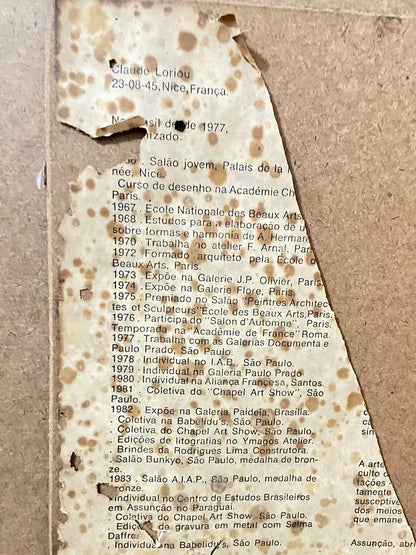 Claude Loriou
23-08-45, Nice, França.
No Brasil desde 1977,
Salão jovem, Palais de la
née, Nice.
Curso de desenho na Académie Ch
Paris.
1967 . Ecole Nationale des Beaux Arts
1968 . Estudos para a elaboração de u
sobre formas e harmonia de A. Herman
1970 . Trabalha no atelier F. Arnal, Par
1972 . Formado arquiteto pela École d
Beaux Arts, Paris.
1973 . Expõe na Galerie J.P. Olivier, Paris.
1974 . Expõe na Galerie Flore, Paris.
1975 . Premiado no Salão "Peintres Architec-
tes et Sculpteurs"Ecole des Beaux Arts,Paris.
1976 . Participa do "Salon d'Automne", Paris.
Temporada na "Académie de France" Roma.
1977 . Trabalha com as Galerias Documenta e
Paulo Prado, São Paulo.
1978 . Individual no I.A.B., São Paulo.
1979 . Individual na Galeria Paulo Prado
1980 . Individual na Aliança Francesa, Santos.
1981 . Coletiva do "Chapel Art Show", São
Paulo.
1982 . Expõe na Galeria Paideia, Brasília.
. Coletiva na Babelidu's, São Paulo.
. Coletiva do Chapel Art Show, São Paulo.
. Edições de litografias no Ymagos Atelier.
. Brindes da Rodrigues Lima Construtora.
. Salão Bunkyo, São Paulo, medalha de bron-
ze.
1983 . Salão A.I.A.P., São Paulo, medalha de
bronze.
. Individual no Centro de Estudos Brasileiros
em Assunção no Paraguai.
. Coletiva do Chapel Art Show, São Paulo.
. Edição de gravura em metal com Selma
Daffre.
. Individual na Babelidu's, São Paulo.
A arte
culto d
tações -
tamente
susceptiv
dos meios
que emane
Assunção, abri